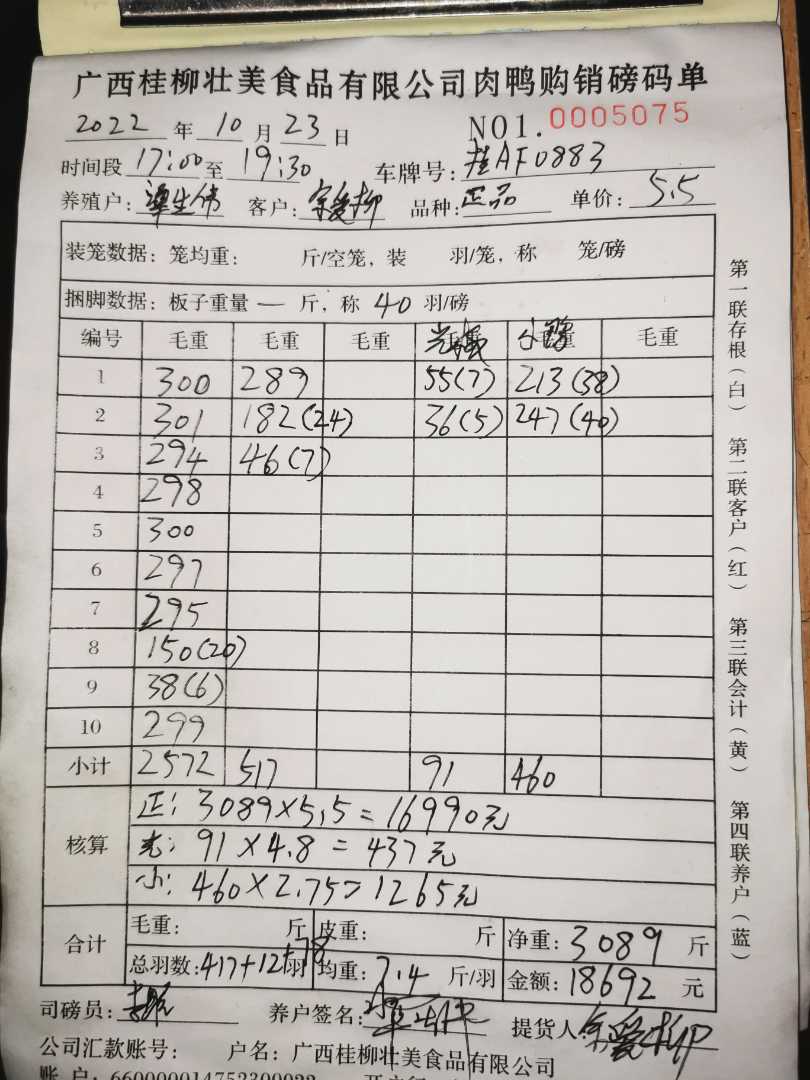 广西桂柳壮美食品有限公司肉鸭购销磅码单
2022 年 10 月 23 日 NO1. 0005075
时间段 17:00 至 19:30 车牌号: 桂AF0883
养殖户: 客户: 品种: 正品 单价: 5.5
装笼数据: 笼均重: 斤/空笼, 装 羽/笼, 称 笼/磅
捆脚数据: 板子重量 — 斤, 称 40 羽/磅
编号 毛重 毛重 毛重 毛重
1 300 289 55(7) 213(38)
2 301 182(24) 36(5) 247(40)
3 294 46(7)
4 298
5 300
6 297
7 295
8 150(20)
9 38(6)
10 299
小计 2572 517 91 460
核算
正: 3089×5.5=16990元
光: 91×4.8=437元
小: 460×2.75=1265元
合计
毛重: 斤 皮重: 斤 净重: 3089 斤
总羽数: 417+12+78 羽 均重: 7.4 斤/羽 金额: 18692 元
司磅员: 养户签名: 提货人:
公司汇款账号: 户名: 广西桂柳壮美食品有限公司
第一联存根(白) 第二联客户(红) 第三联会计(黄) 第四联养户(蓝)